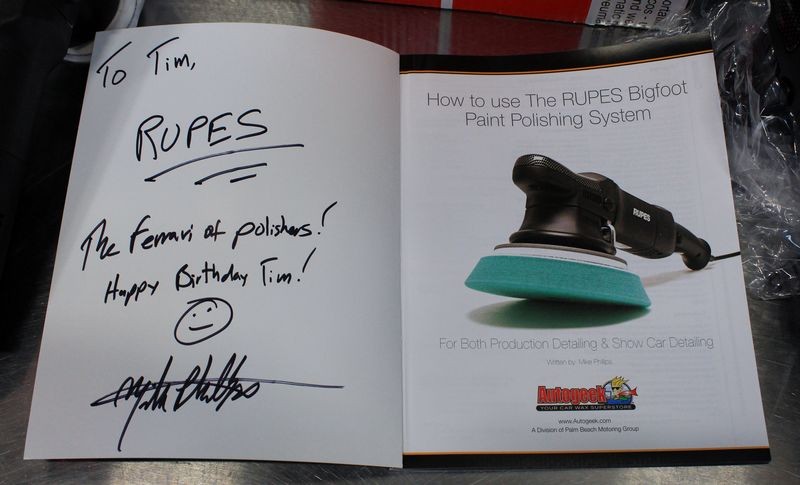 To Tim,
RUPES
The Ferrari of polishers!
Happy Birthday Tim!
Mike Phillips
How to use The RUPES Bigfoot
Paint Polishing System
RUPES
For Both Production Detailing & Show Car Detailing
Written by: Mike Phillips
Autogeek
YOUR CAR WAX SUPERSTORE
www.Autogeek.com
A Division of Palm Beach Motoring Group